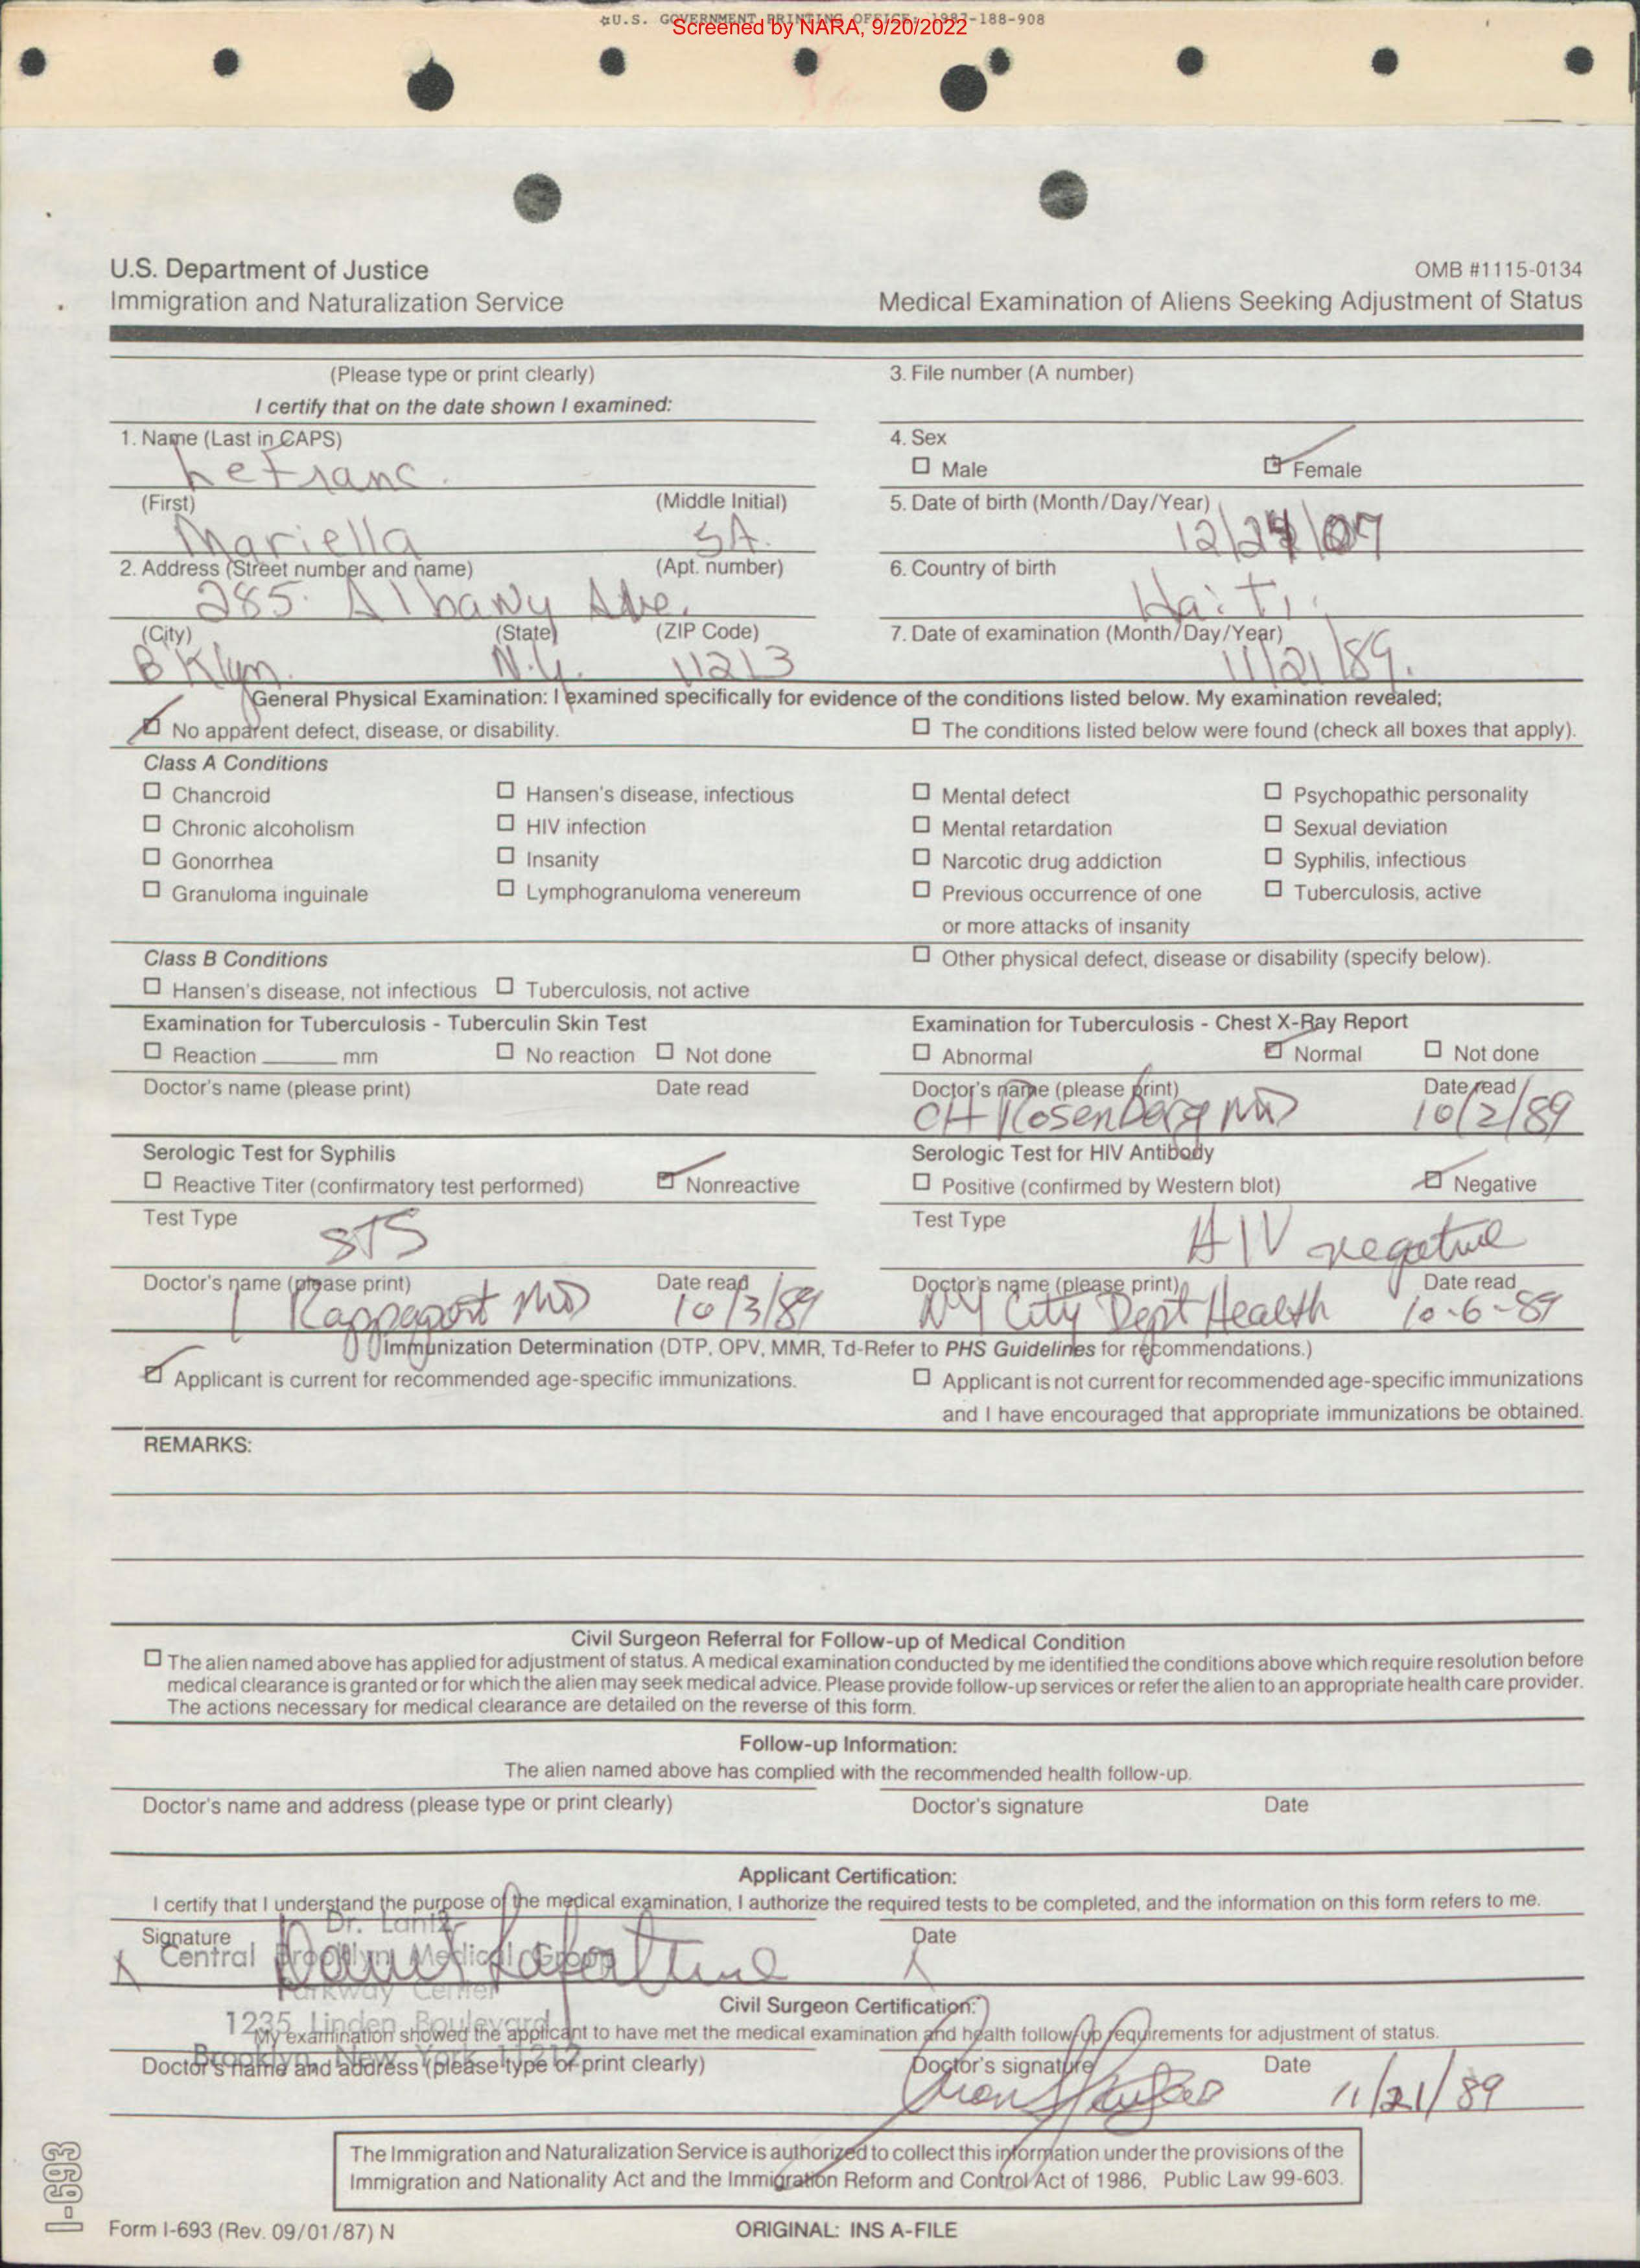 ☆U.S. GOVERNMENT PRINTING OFFICE: 1987-188-908
Screened by NARA, 9/20/2022
U.S. Department of Justice
Immigration and Naturalization Service
OMB #1115-0134
Medical Examination of Aliens Seeking Adjustment of Status
(Please type or print clearly)
I certify that on the date shown I examined:
3. File number (A number)
1. Name (Last in CAPS)
LeFranc.
4. Sex
☐ Male ☑ Female
(First) (Middle Initial)
Mariella
5. Date of birth (Month/Day/Year)
12/24/07
2. Address (Street number and name) (Apt. number)
285. Albany Ave. 3A.
6. Country of birth
Haiti
(City) (State) (ZIP Code)
BKlyn. N.Y. 11213
7. Date of examination (Month/Day/Year)
11/21/89.
General Physical Examination: I examined specifically for evidence of the conditions listed below. My examination revealed;
☑ No apparent defect, disease, or disability. ☐ The conditions listed below were found (check all boxes that apply).
Class A Conditions
☐ Chancroid ☐ Hansen's disease, infectious ☐ Mental defect ☐ Psychopathic personality
☐ Chronic alcoholism ☐ HIV infection ☐ Mental retardation ☐ Sexual deviation
☐ Gonorrhea ☐ Insanity ☐ Narcotic drug addiction ☐ Syphilis, infectious
☐ Granuloma inguinale ☐ Lymphogranuloma venereum ☐ Previous occurrence of one ☐ Tuberculosis, active
or more attacks of insanity
Class B Conditions ☐ Other physical defect, disease or disability (specify below).
☐ Hansen's disease, not infectious ☐ Tuberculosis, not active
Examination for Tuberculosis - Tuberculin Skin Test
☐ Reaction ______ mm ☐ No reaction ☐ Not done
Doctor's name (please print) Date read
Examination for Tuberculosis - Chest X-Ray Report
☐ Abnormal ☑ Normal ☐ Not done
Doctor's name (please print) Date read
CH Rosenberg MD 10/2/89
Serologic Test for Syphilis
☐ Reactive Titer (confirmatory test performed) ☑ Nonreactive
Test Type
STS
Doctor's name (please print) Date read
Rappaport MD 10/3/89
Serologic Test for HIV Antibody
☐ Positive (confirmed by Western blot) ☑ Negative
Test Type
HIV negative
Doctor's name (please print) Date read
NY City Dept Health 10-6-89
Immunization Determination (DTP, OPV, MMR, Td-Refer to PHS Guidelines for recommendations.)
☑ Applicant is current for recommended age-specific immunizations. ☐ Applicant is not current for recommended age-specific immunizations
and I have encouraged that appropriate immunizations be obtained.
REMARKS:
Civil Surgeon Referral for Follow-up of Medical Condition
☐ The alien named above has applied for adjustment of status. A medical examination conducted by me identified the conditions above which require resolution before
medical clearance is granted or for which the alien may seek medical advice. Please provide follow-up services or refer the alien to an appropriate health care provider.
The actions necessary for medical clearance are detailed on the reverse of this form.
Follow-up Information:
The alien named above has complied with the recommended health follow-up.
Doctor's name and address (please type or print clearly) Doctor's signature Date
Applicant Certification:
I certify that I understand the purpose of the medical examination, I authorize the required tests to be completed, and the information on this form refers to me.
Signature Date
X X
Dr. Lantz
Central Brooklyn Medical Group
Parkway Center
1235 Linden Boulevard
Brooklyn, New York 11212
Civil Surgeon Certification:
My examination showed the applicant to have met the medical examination and health follow-up requirements for adjustment of status.
Doctor's name and address (please type or print clearly) Doctor's signature Date
11/21/89
The Immigration and Naturalization Service is authorized to collect this information under the provisions of the
Immigration and Nationality Act and the Immigration Reform and Control Act of 1986, Public Law 99-603.
I-693
Form I-693 (Rev. 09/01/87) N
ORIGINAL: INS A-FILE